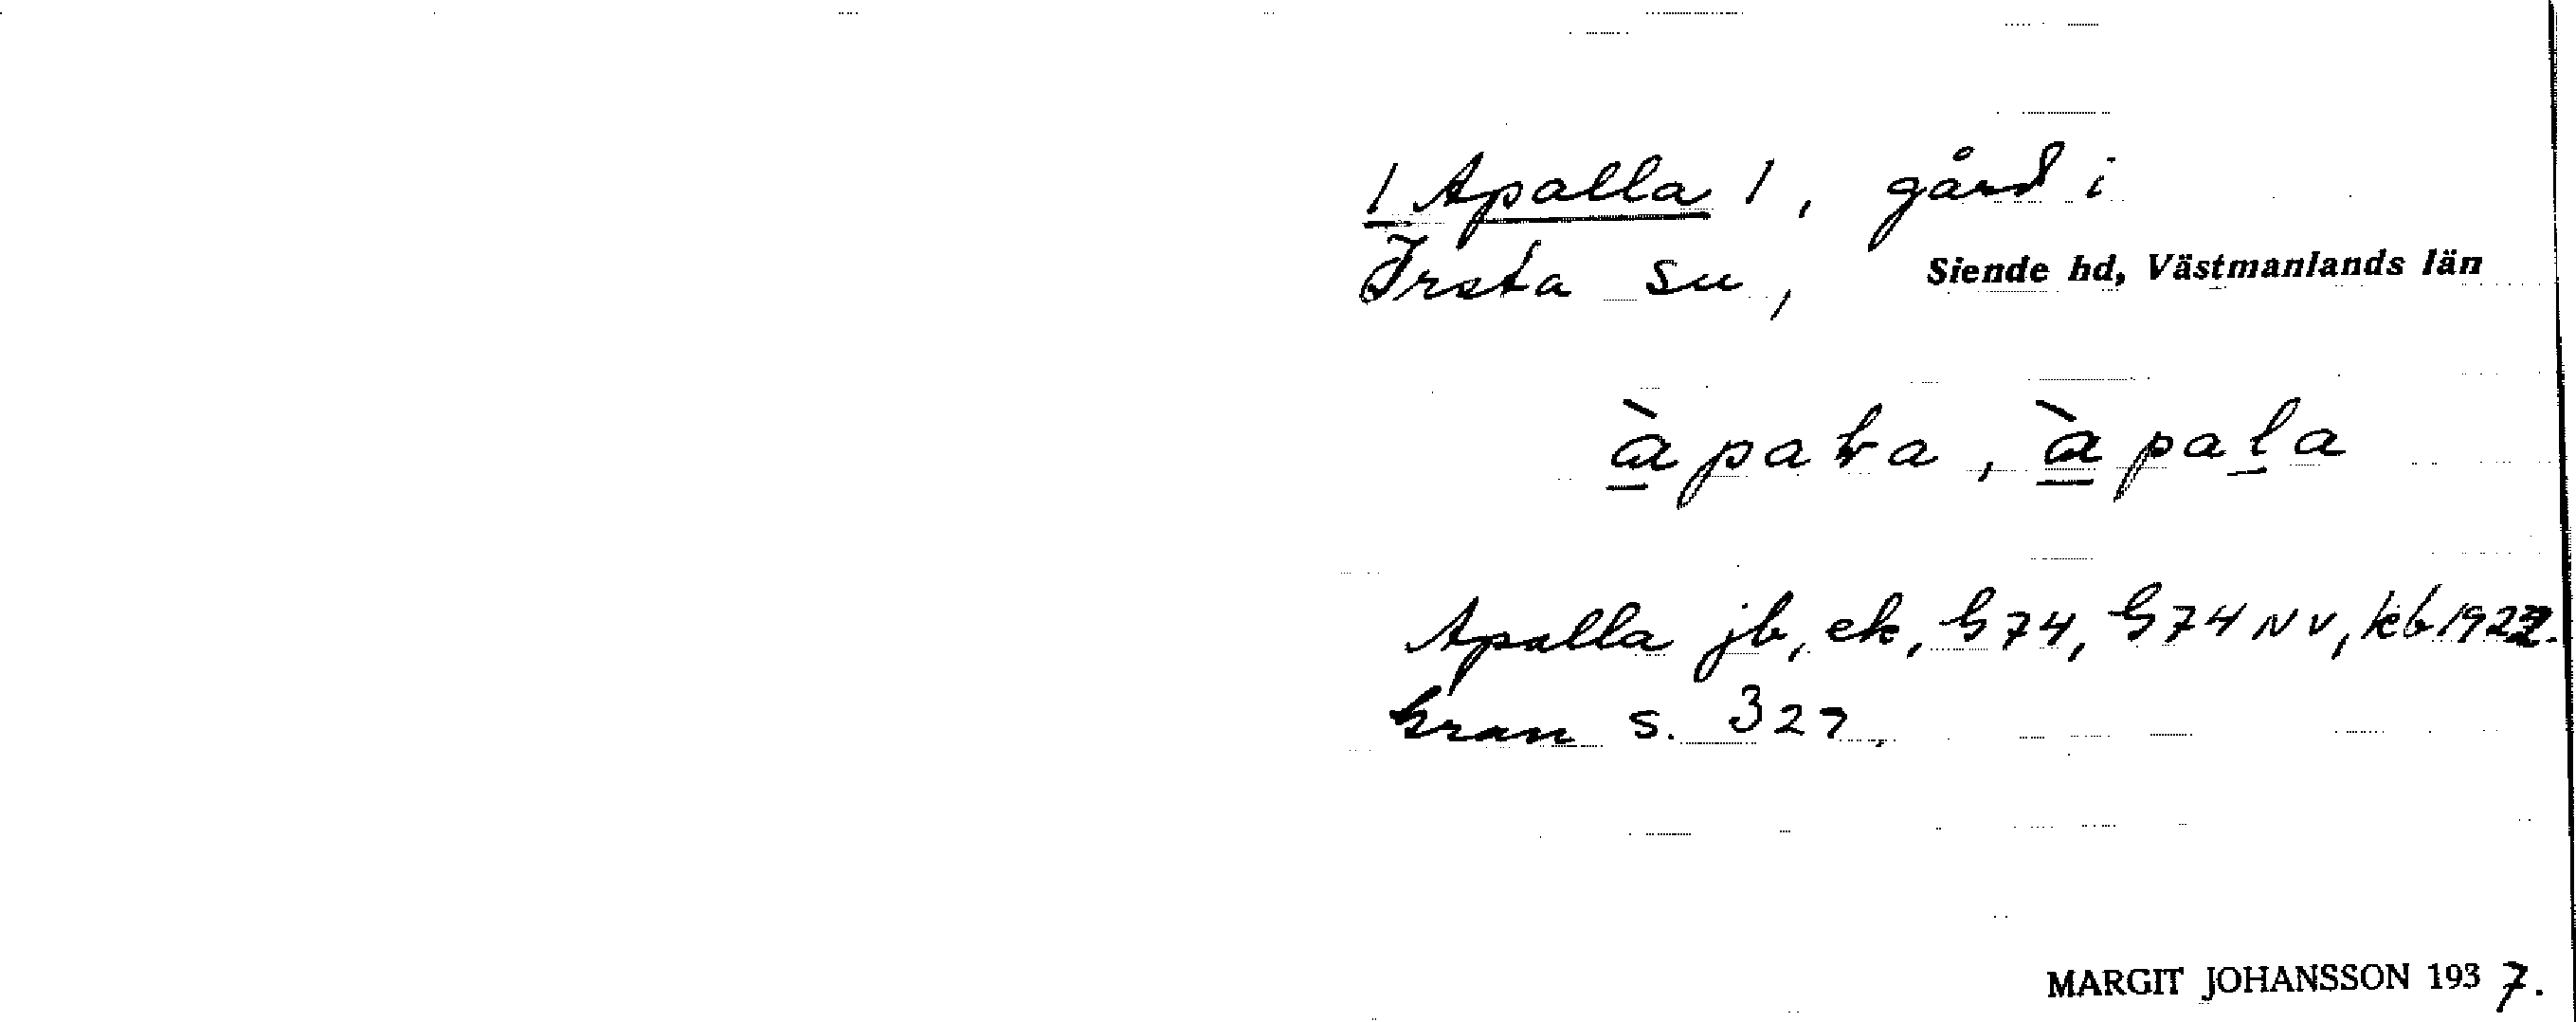 1 Apalla 1, gård i
Irsta sn, Siende hd, Västmanlands län
àpaƚa, àpaḻa
Apalla jb, ek, G 74, G 74 NV, kb 1922.
Gran s. 327.
MARGIT JOHANSSON 1937.